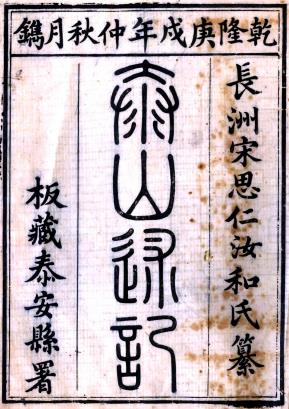 乾隆庚戌年仲秋月鐫
長洲宋思仁汝和氏纂
泰山述記
板藏泰安縣署